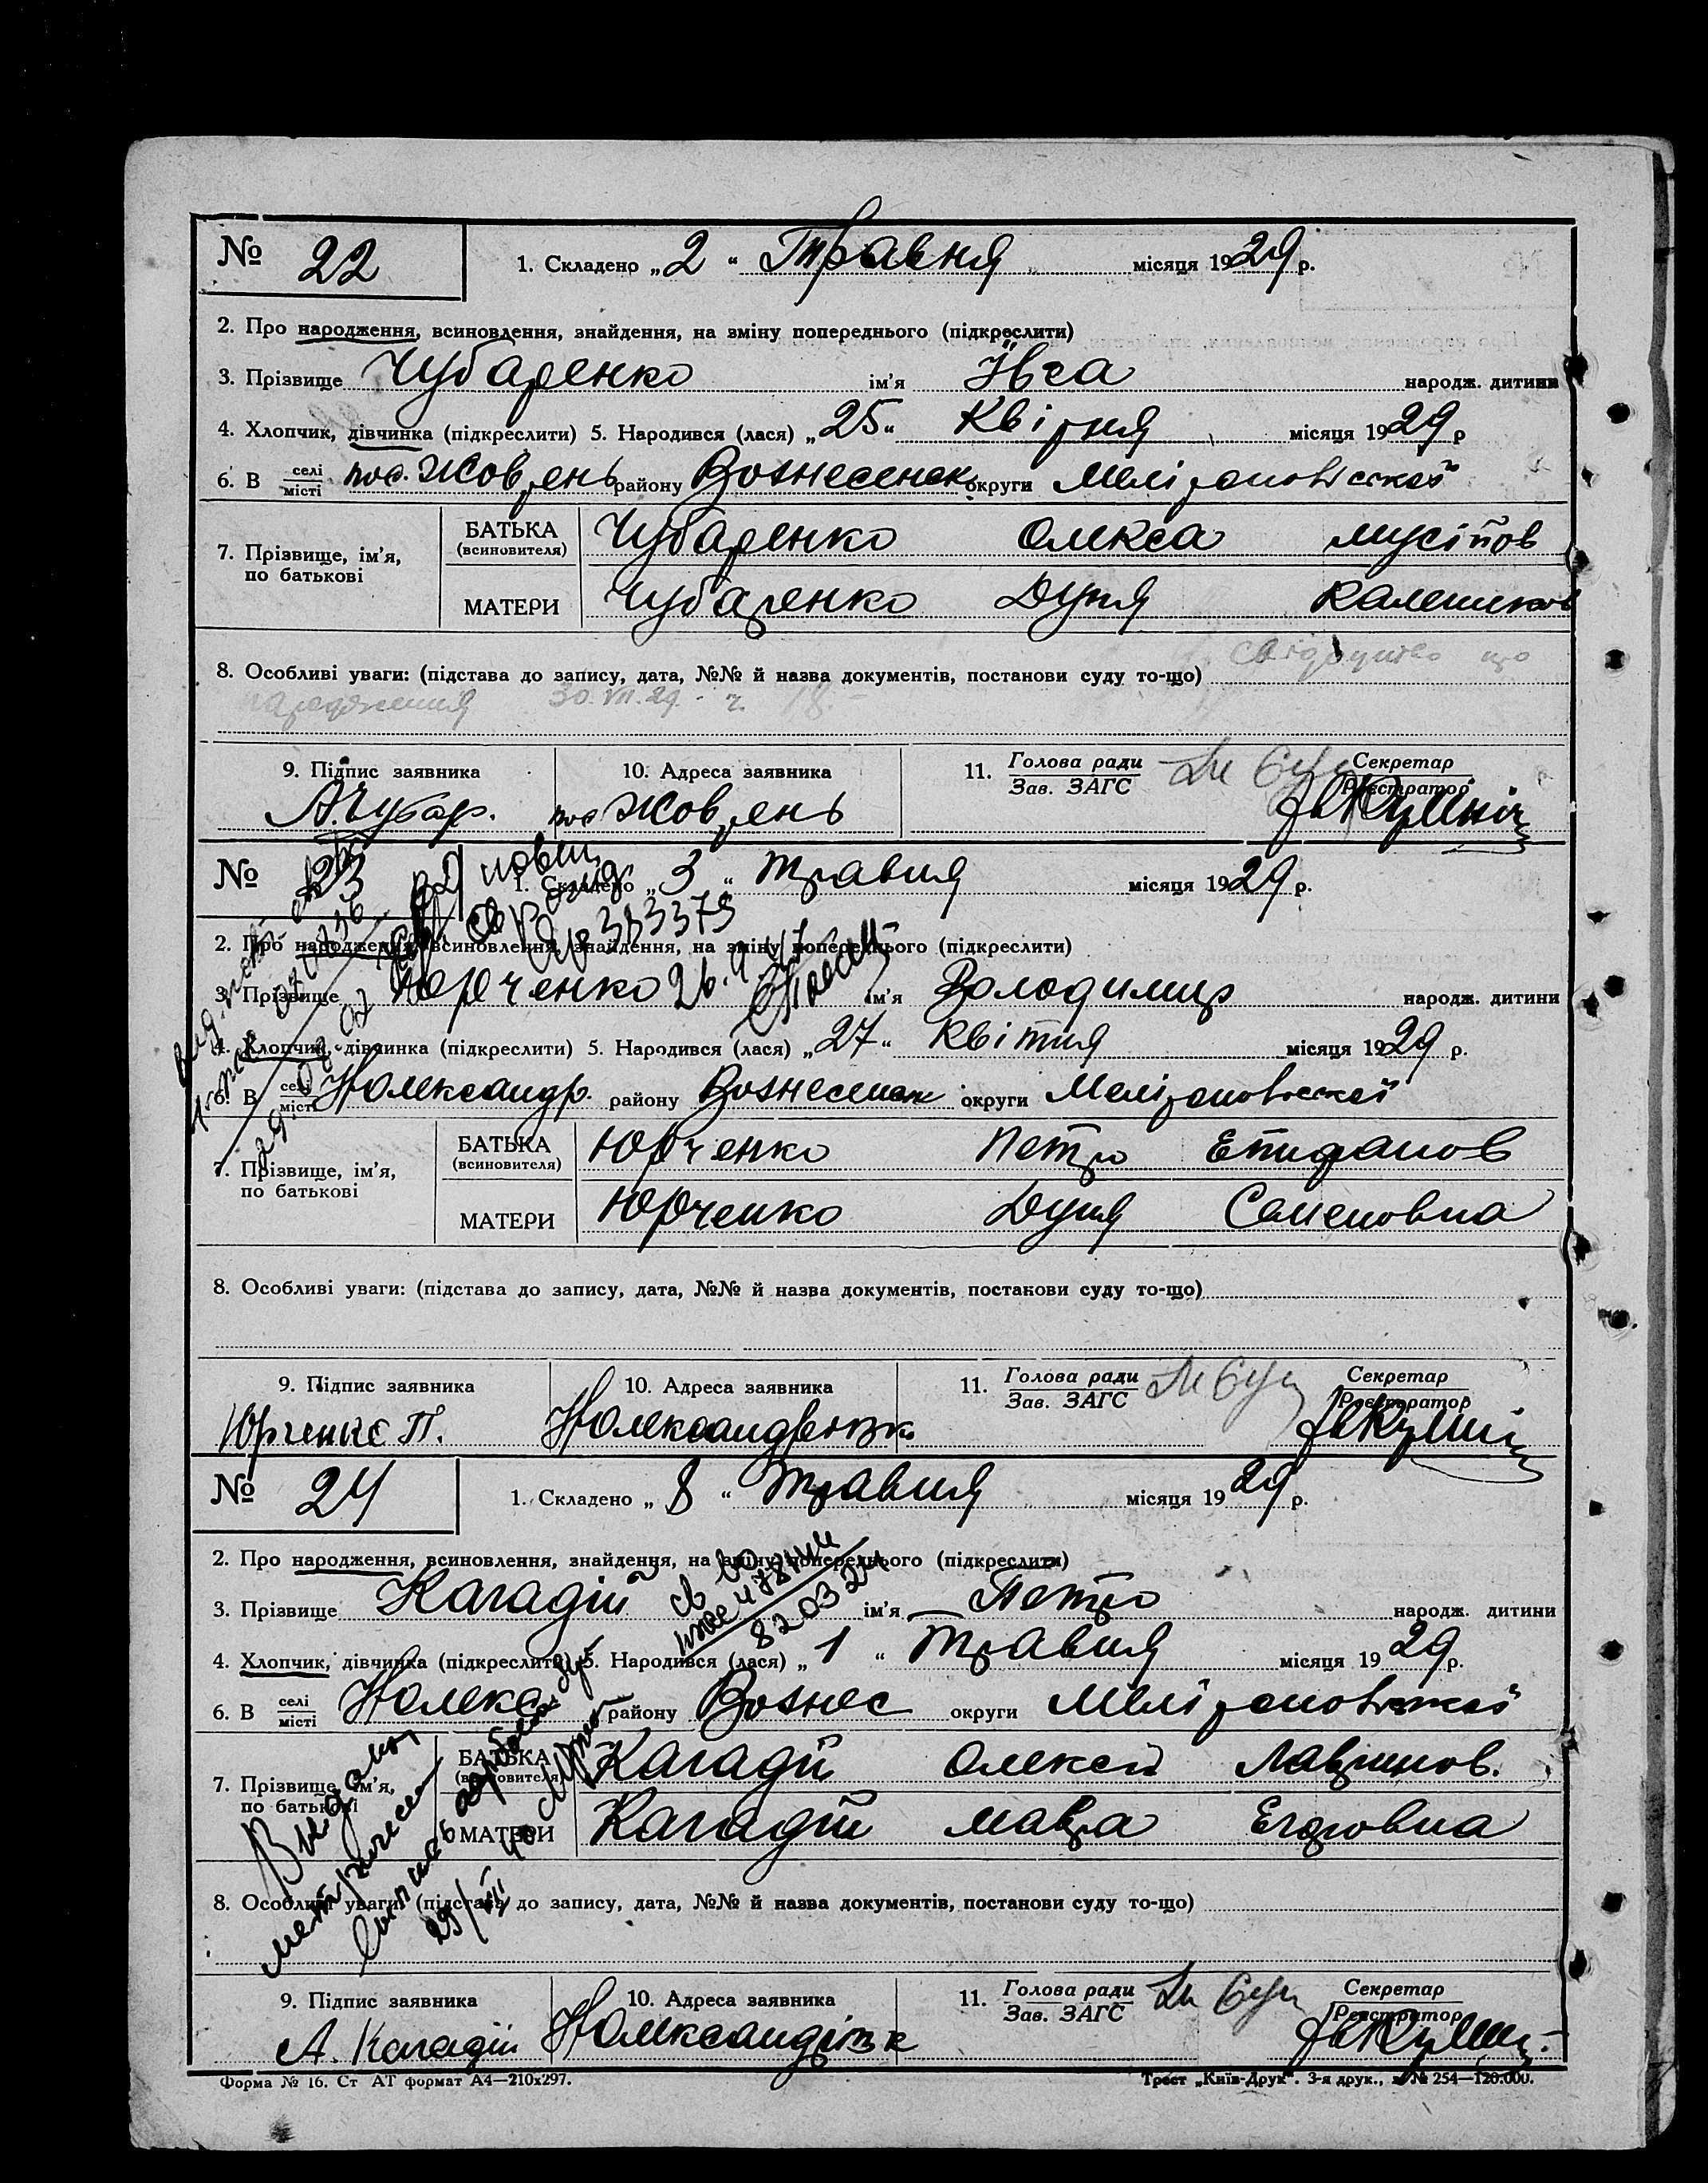 № 22 1. Складено „2“ Травня місяця 1929 р.
2. Про народження, всиновлення, знайдення, на зміну попереднього (підкреслити)
3. Прізвище Чубаренко ім'я народж. дитини
4. Хлопчик, дівчинка (підкреслити) 5. Народився (лася) „25“ Квітня місяця 1929 р
6. В селі/місті пос. Жовтень району Вознесенск округи Мелітопольської
7. Прізвище, ім'я, по батькові
БАТЬКА (всиновителя) Чубаренко Олекса
МАТЕРИ Чубаренко Дуня
8. Особливі уваги: (підстава до запису, дата, №№ й назва документів, постанови суду то-що) свідоцтво про
народження 30.VII.29. ч. 18.
9. Підпис заявника 10. Адреса заявника 11. Голова ради Секретар
Зав. ЗАГС Реєстратор
А.Чубар. пос Жовтень
№ 23 1. Складено „3“ травня місяця 1929 р.
2. Про народження, всиновлення, знайдення, на зміну попереднього (підкреслити)
3. Прізвище Юрченко ім'я Володимир народж. дитини
4. Хлопчик, дівчинка (підкреслити) 5. Народився (лася) „27“ квітня місяця 1929 р.
6. В селі/місті Нолександр. району Вознесенск округи Мелітопольської
7. Прізвище, ім'я, по батькові
БАТЬКА (всиновителя) Юрченко Петро Епифанов
МАТЕРИ Юрченко Дуня Семеновна
8. Особливі уваги: (підстава до запису, дата, №№ й назва документів, постанови суду то-що)
9. Підпис заявника 10. Адреса заявника 11. Голова ради Секретар
Зав. ЗАГС Реєстратор
Юрченко П. Нолександрівк
№ 24 1. Складено „8“ травня місяця 1929 р.
2. Про народження, всиновлення, знайдення, на зміну попереднього (підкреслити)
3. Прізвище Кагадій ім'я Петро народж. дитини
4. Хлопчик, дівчинка (підкреслити) 5. Народився (лася) „1“ травня місяця 1929 р.
6. В селі/місті Нолекс району Вознес округи Мелітопольської
7. Прізвище, ім'я, по батькові
БАТЬКА (всиновителя) Кагадій Олексій
МАТЕРИ Кагадій Мавра Егоровна
8. Особливі уваги: (підстава до запису, дата, №№ й назва документів, постанови суду то-що)
9. Підпис заявника 10. Адреса заявника 11. Голова ради Секретар
Зав. ЗАГС Реєстратор
А. Кагадій Нолександрівк
Форма № 16. Ст АТ формат А4—210x297. Трест „Київ-Друк“. 3-я друк., з. № 254—120.000.